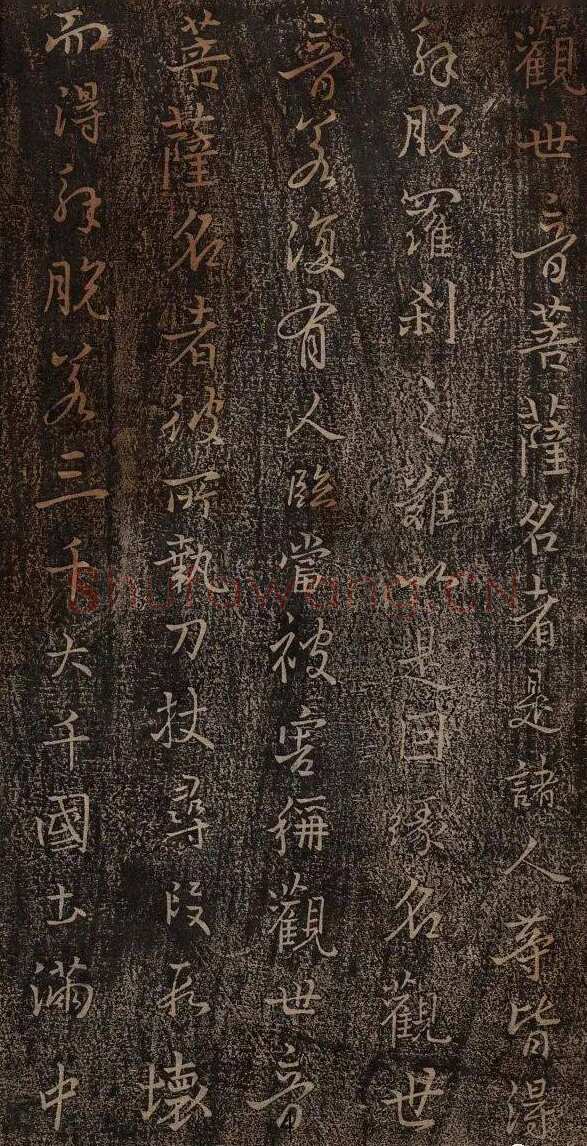 觀世音菩薩名者是諸人等皆得
解脫羅刹之難以是因緣名觀世
音若復有人臨當被害稱觀世音
菩薩名者彼所執刀杖尋段段壞
而得解脫若三千大千國土滿中
shufawang.CN